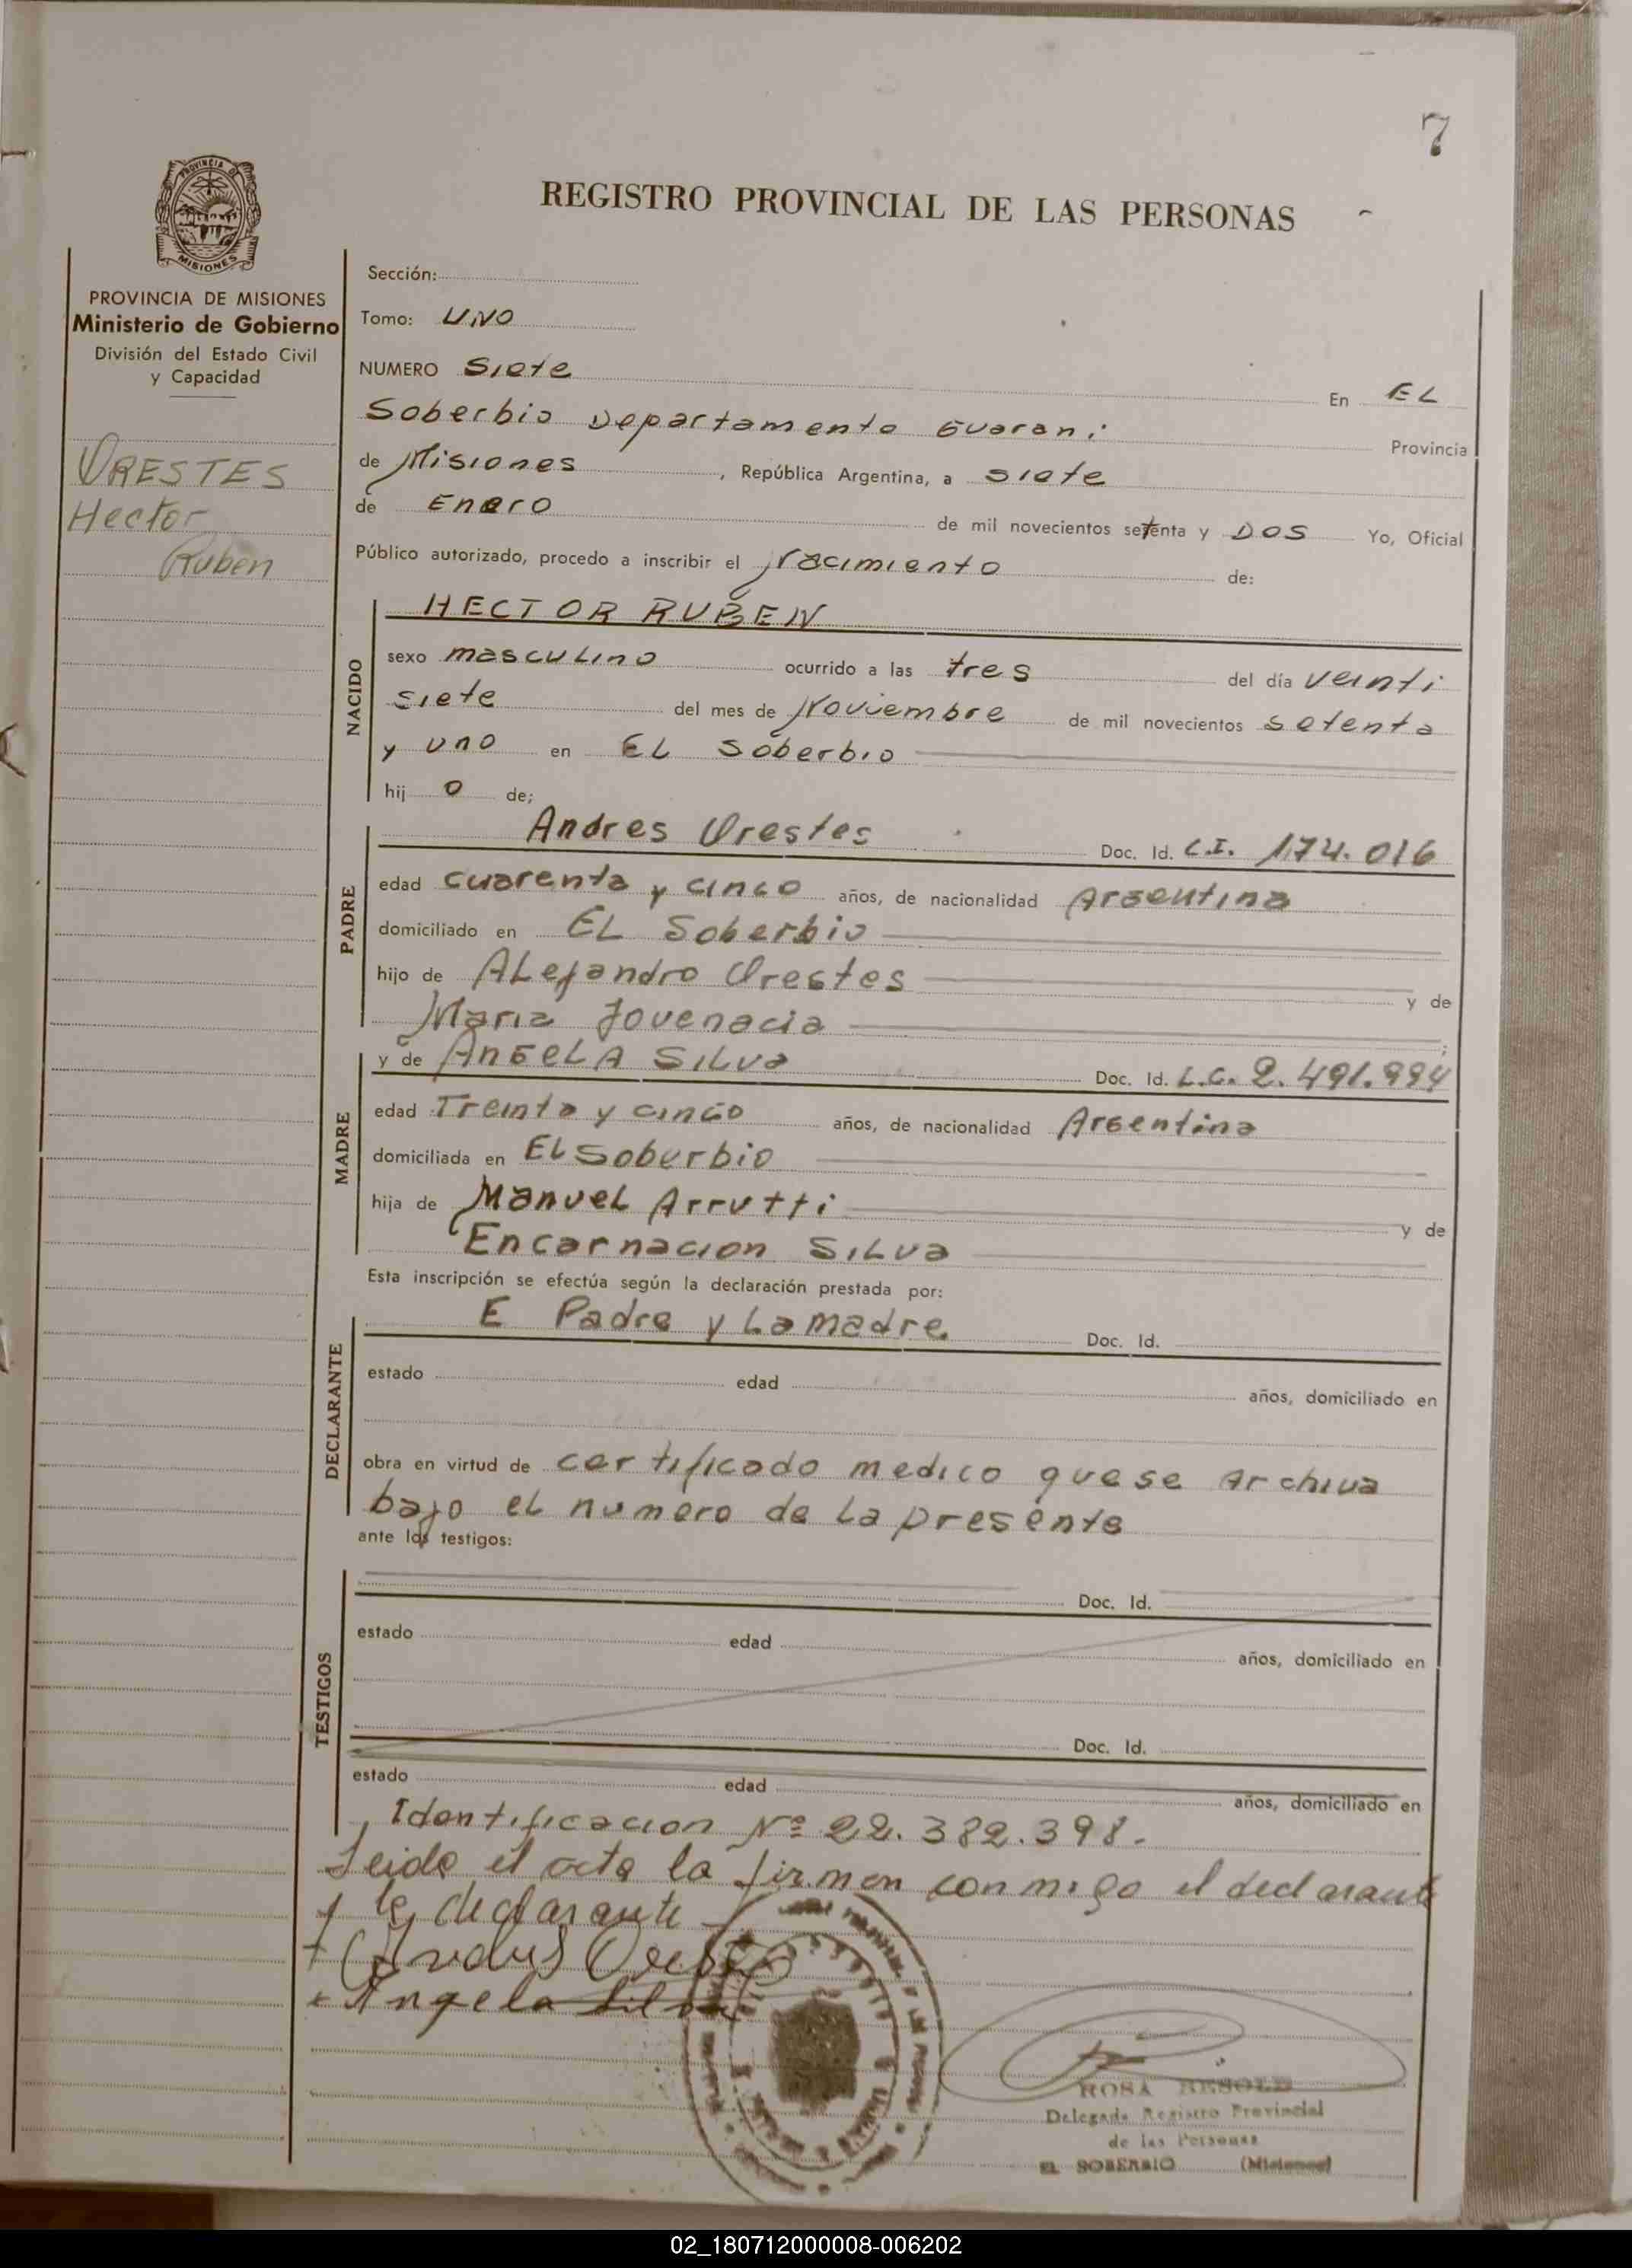 7
REGISTRO PROVINCIAL DE LAS PERSONAS
PROVINCIA DE
MISIONES
PROVINCIA DE MISIONES
Ministerio de Gobierno
División del Estado Civil
y Capacidad
ORESTES
Hector
Ruben
Sección:
Tomo: UNO
NUMERO Siete
En EL
Soberbio Departamento Guarani Provincia
de Misiones, República Argentina, a siete
de Enero de mil novecientos setenta y DOS Yo, Oficial
Público autorizado, procedo a inscribir el Nacimiento de:
NACIDO
HECTOR RUBEN
sexo masculino ocurrido a las tres del día veinti
siete del mes de Noviembre de mil novecientos setenta
y uno en EL Soberbio
hij o de;
PADRE
Andres Orestes Doc. Id. C.I. 174.016
edad cuarenta y cinco años, de nacionalidad Argentina
domiciliado en EL Soberbio
hijo de ALejandro Orestes y de
Maria Jovenacia ;
MADRE
y de ANGELA SILVA Doc. Id. L.C. 2.491.994
edad Treinta y cinco años, de nacionalidad Argentina
domiciliada en EL Soberbio
hija de Manuel Arrutti y de
Encarnacion SILVA
Esta inscripción se efectúa según la declaración prestada por:
DECLARANTE
E Padre y La madre Doc. Id.
estado edad años, domiciliado en
obra en virtud de certificado medico que se Archiva
bajo el numero de La presente
ante los testigos:
TESTIGOS
Doc. Id.
estado edad años, domiciliado en
Doc. Id.
estado edad años, domiciliado en
Identificacion Nº 22.382.398.
Leida el acta la firman conmigo el declarante
y la declarante
Andres Orestes
Angela Silva
ROSA
Delegada Registro Provincial
de las Personas
EL SOBERBIO (Misiones)
02_180712000008-006202